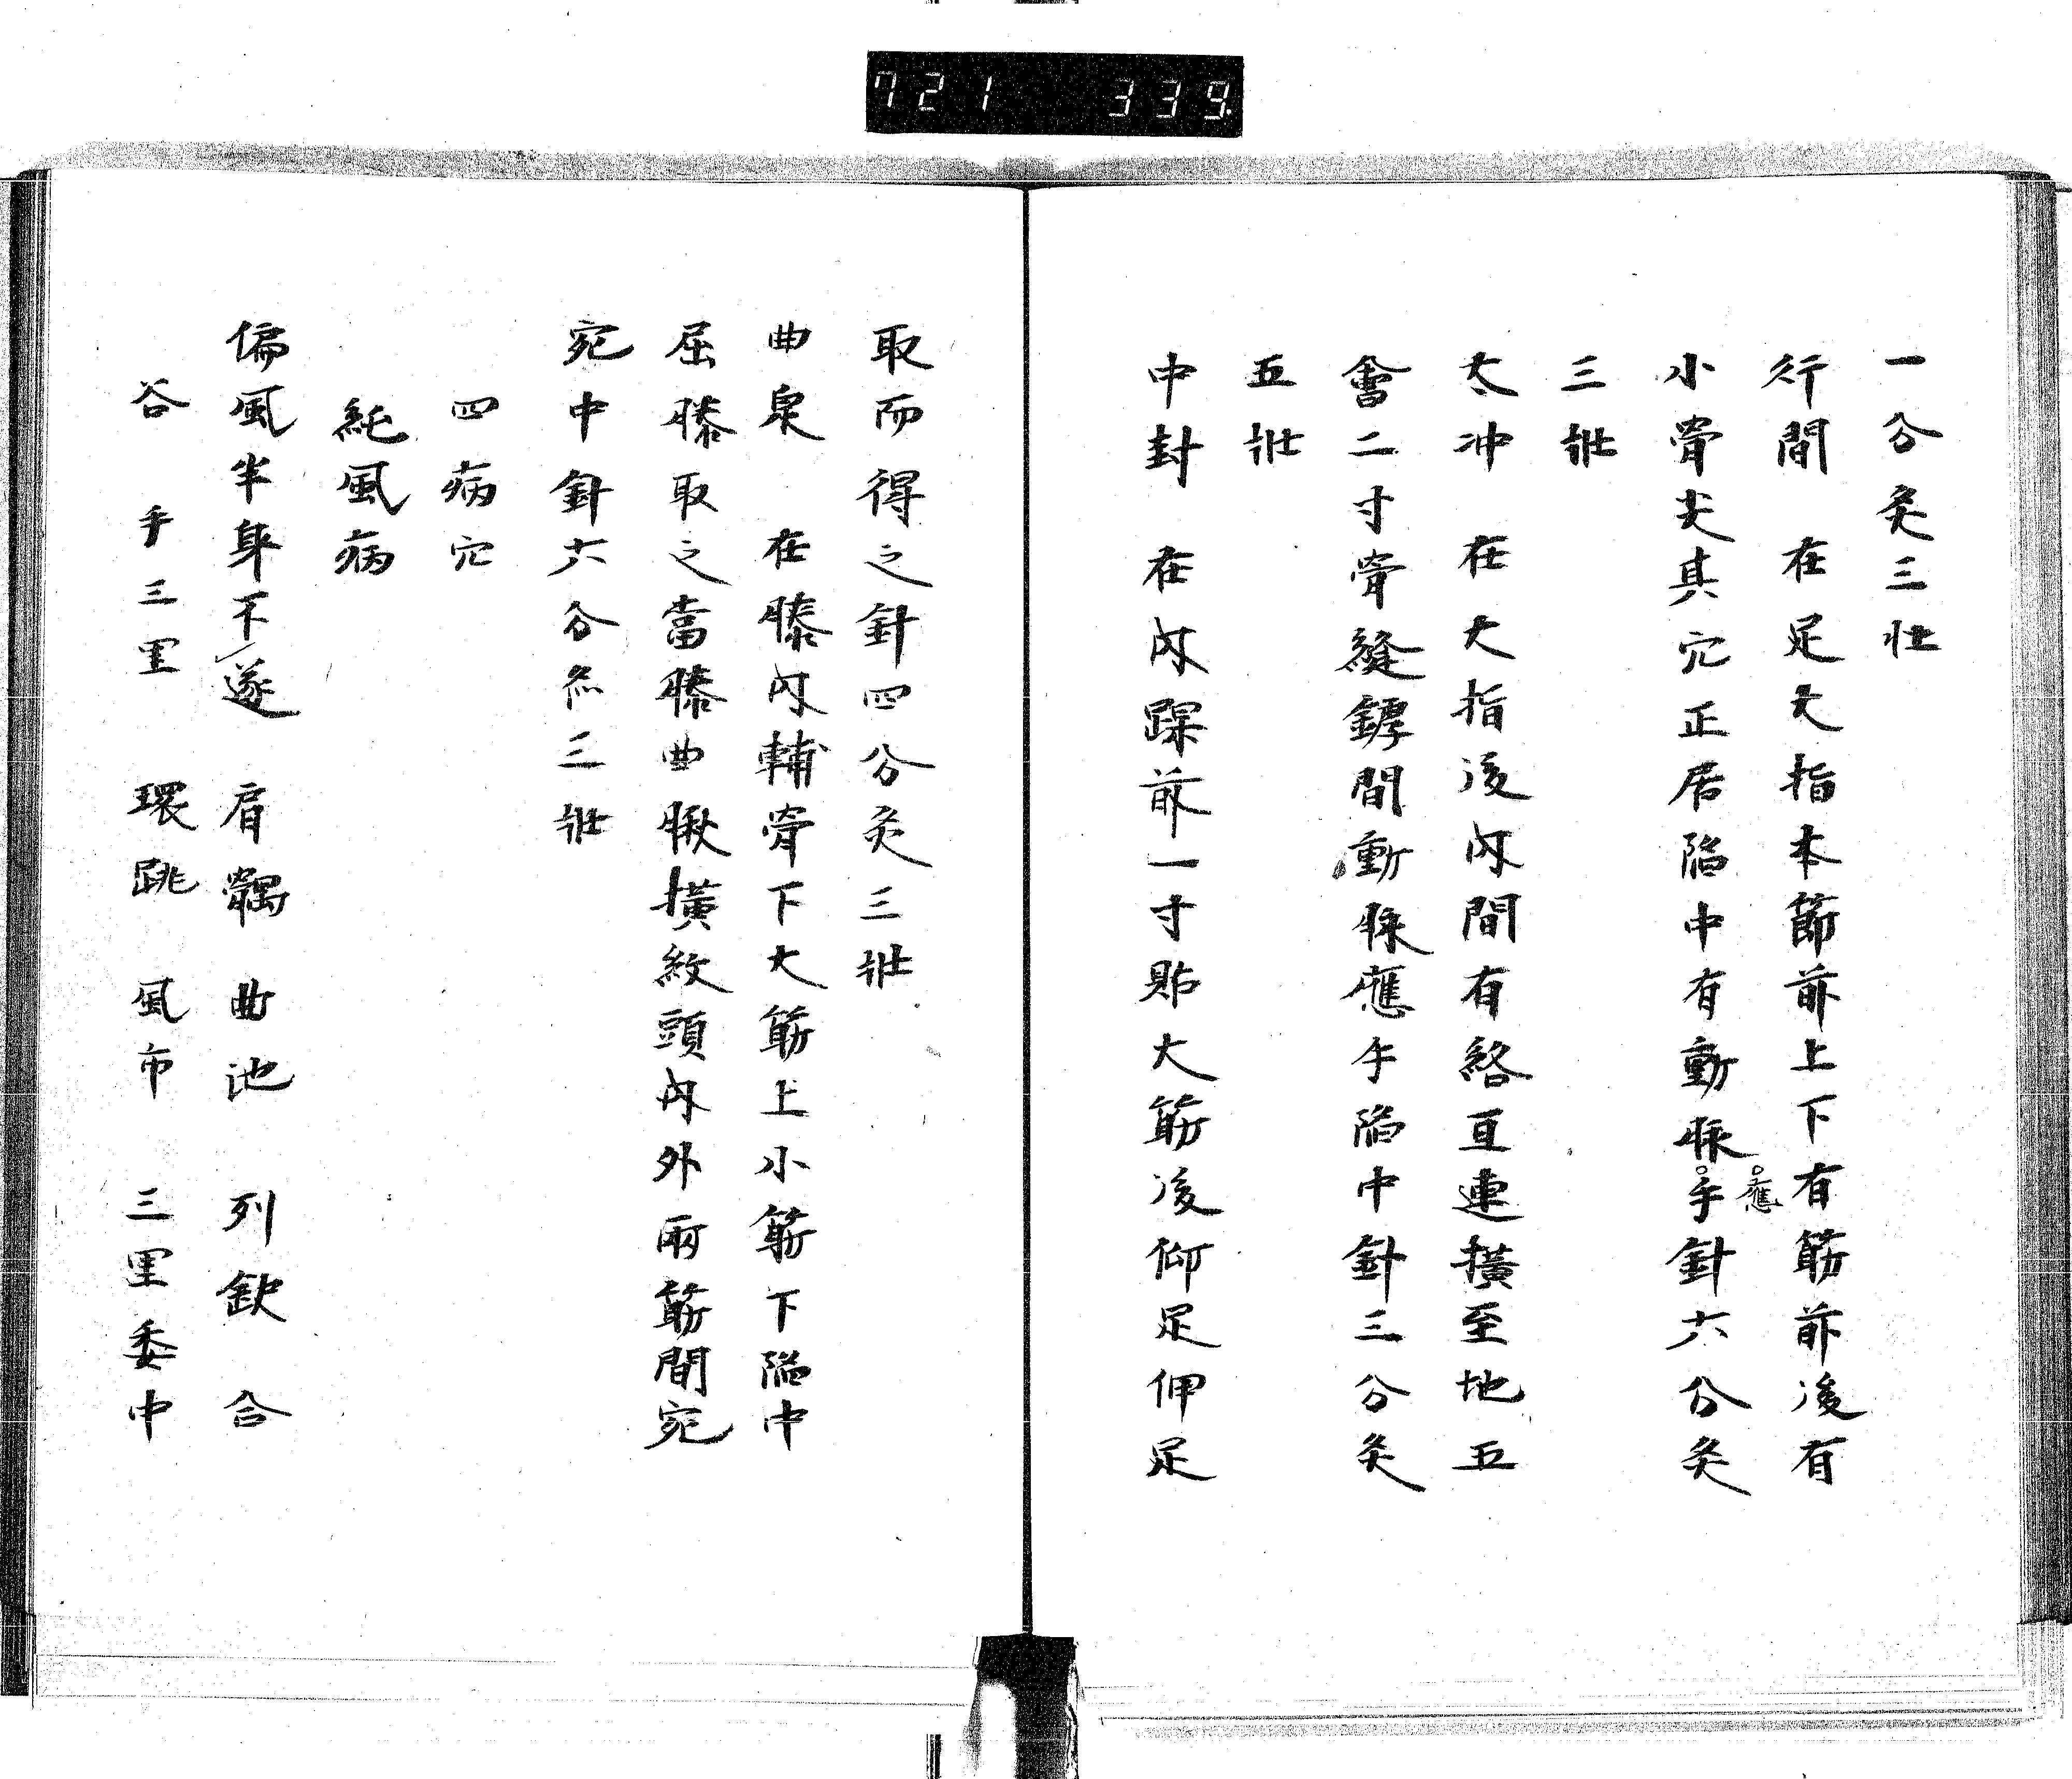 721 339
一分灸三壮
行間 在足大指本節前上下有筋前後有
小骨尖其穴正居陥中有動脉應手針六分灸
三壮
太冲 在大指後内間有絡亘連横至地五
會二寸骨縫罅間動脉應手陥中針三分灸
五壮
中封 在内踝前一寸貼大筋後仰足伸足
取而得之針四分灸三壮
曲泉 在膝内輔骨下大筋上小筋下陥中
屈膝取之當膝曲䐐横紋頭内外兩筋間宛
宛中針六分灸三壮
四病穴
紕風病
偏風半身不遂 肩髃 曲池 列缺 合
谷 手三里 環跳 風市 三里委中